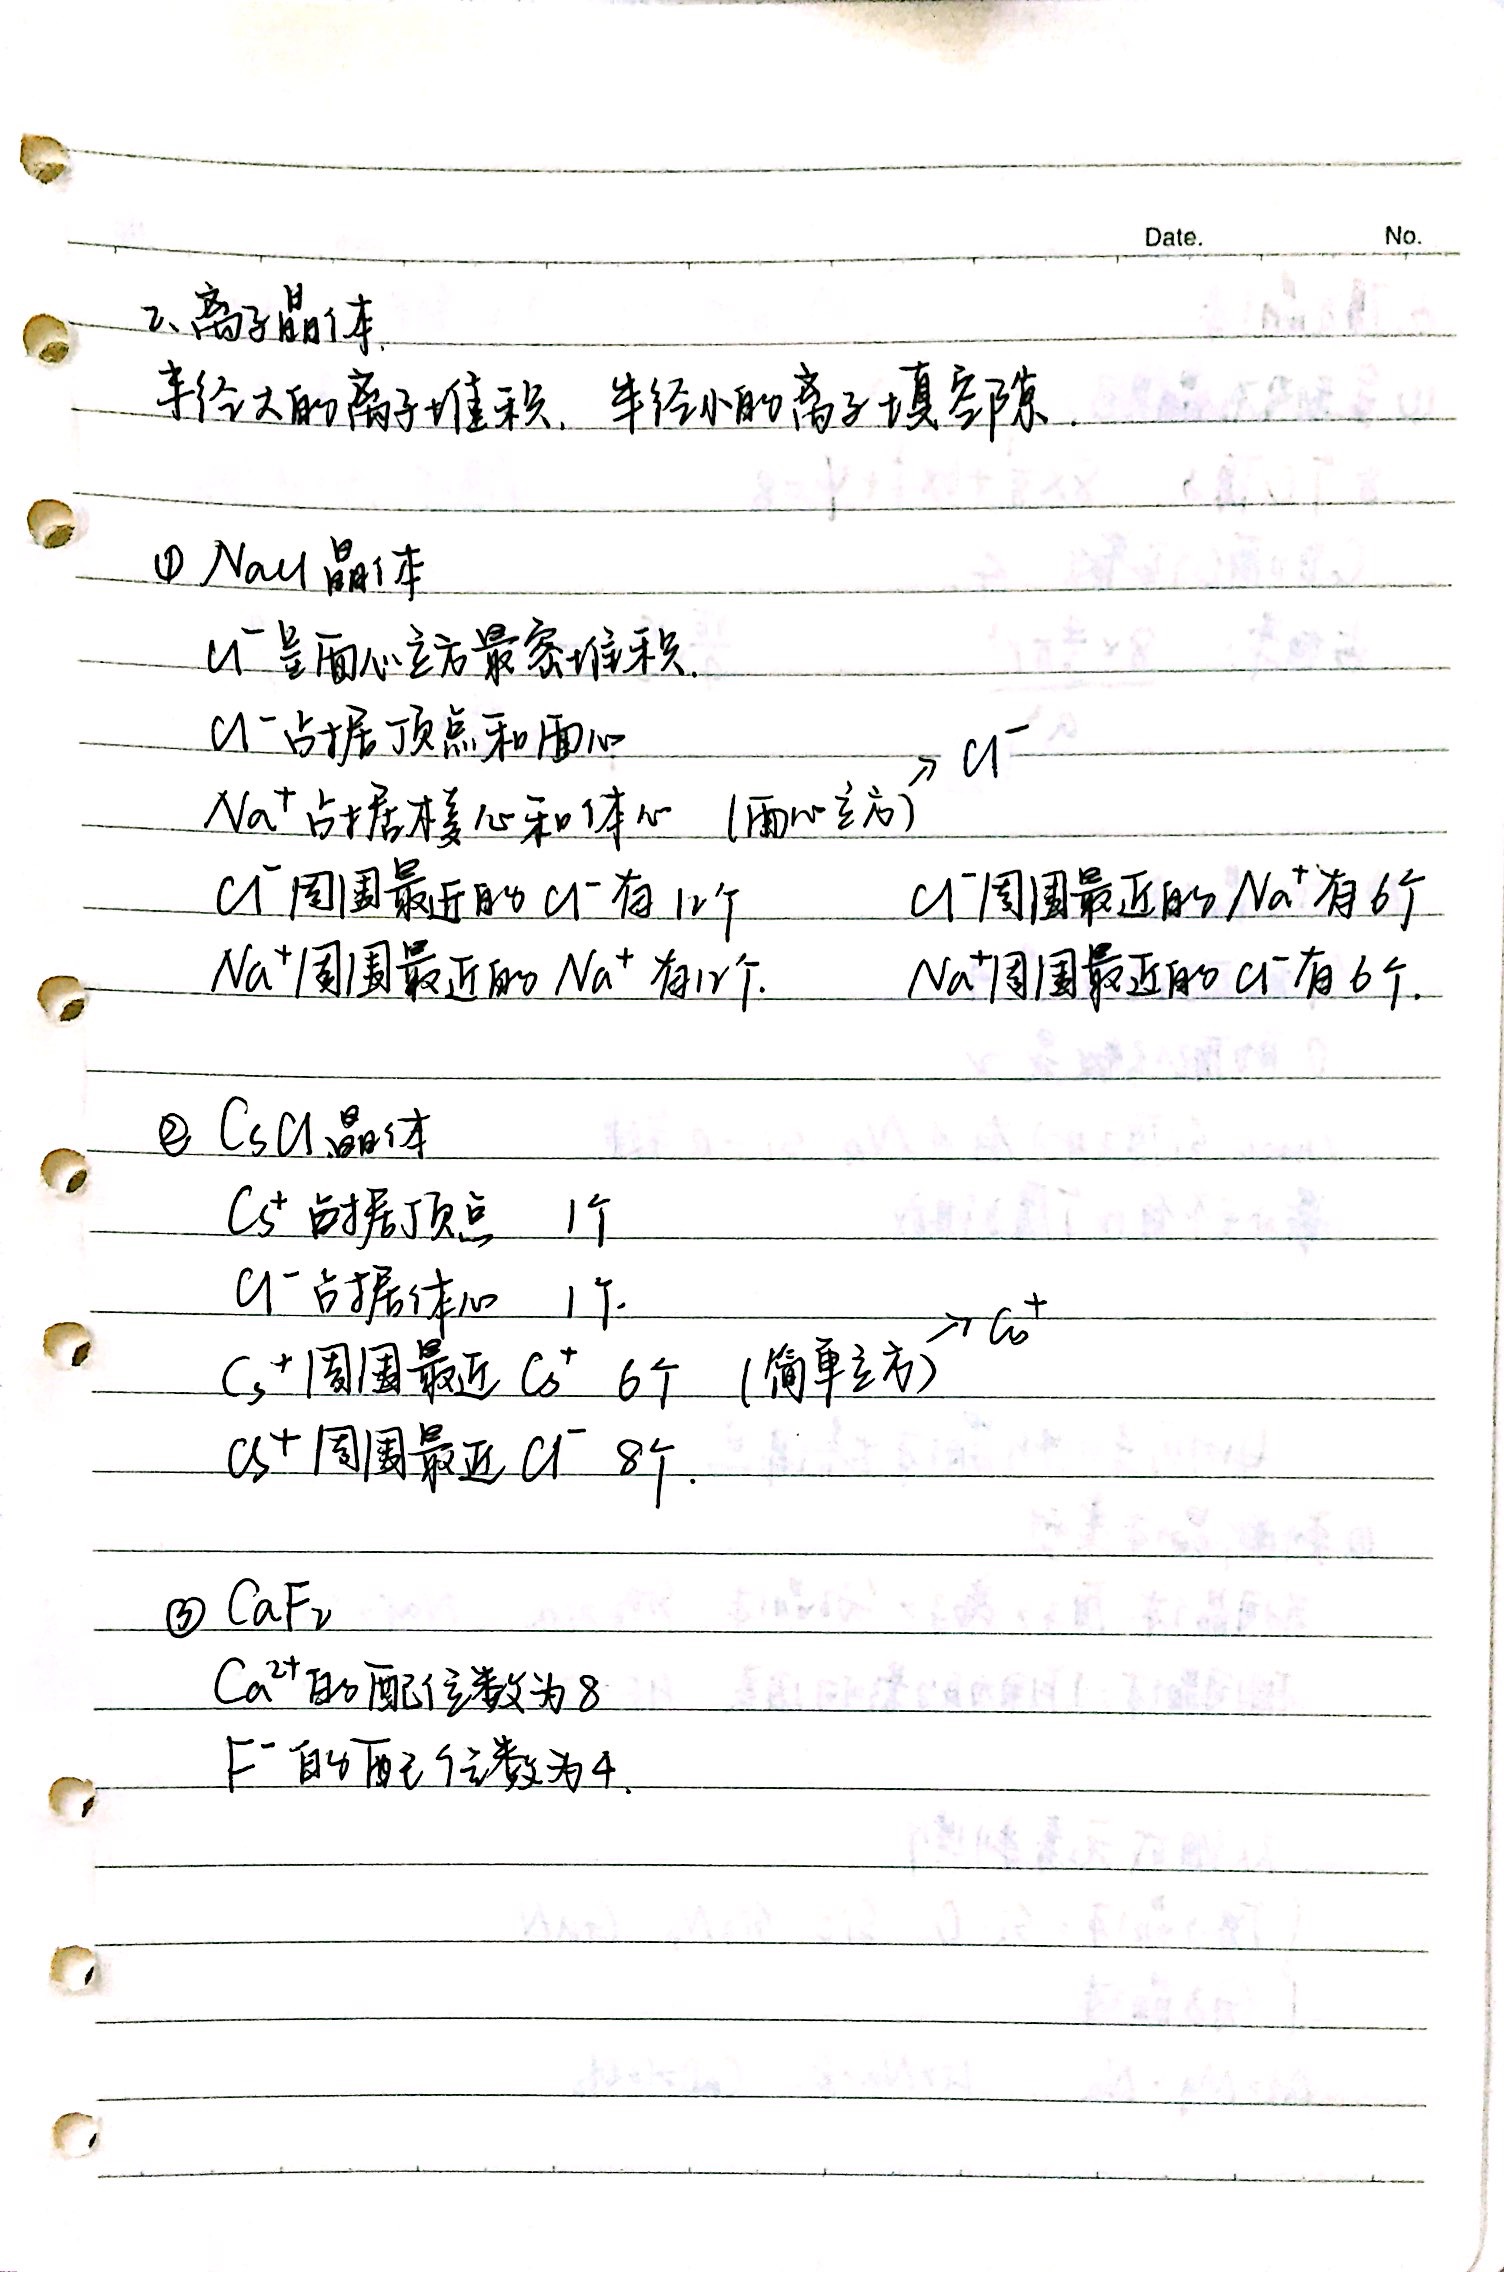 Date. No.
2、离子晶体.
半径大的离子堆积, 半径小的离子填空隙.
① NaCl晶体
Cl⁻呈面心立方最密堆积.
Cl⁻占据顶点和面心
Na⁺占据棱心和体心 (面心立方)→Cl⁻
Cl⁻周围最近的Cl⁻有12个 Cl⁻周围最近的Na⁺有6个
Na⁺周围最近的Na⁺有12个. Na⁺周围最近的Cl⁻有6个.
② CsCl晶体
Cs⁺占据顶点 1个
Cl⁻占据体心 1个.
Cs⁺周围最近Cs⁺ 6个 (简单立方)→Cs⁺
Cs⁺周围最近Cl⁻ 8个.
③ CaF₂
Ca²⁺的配位数为8
F⁻的配位数为4.